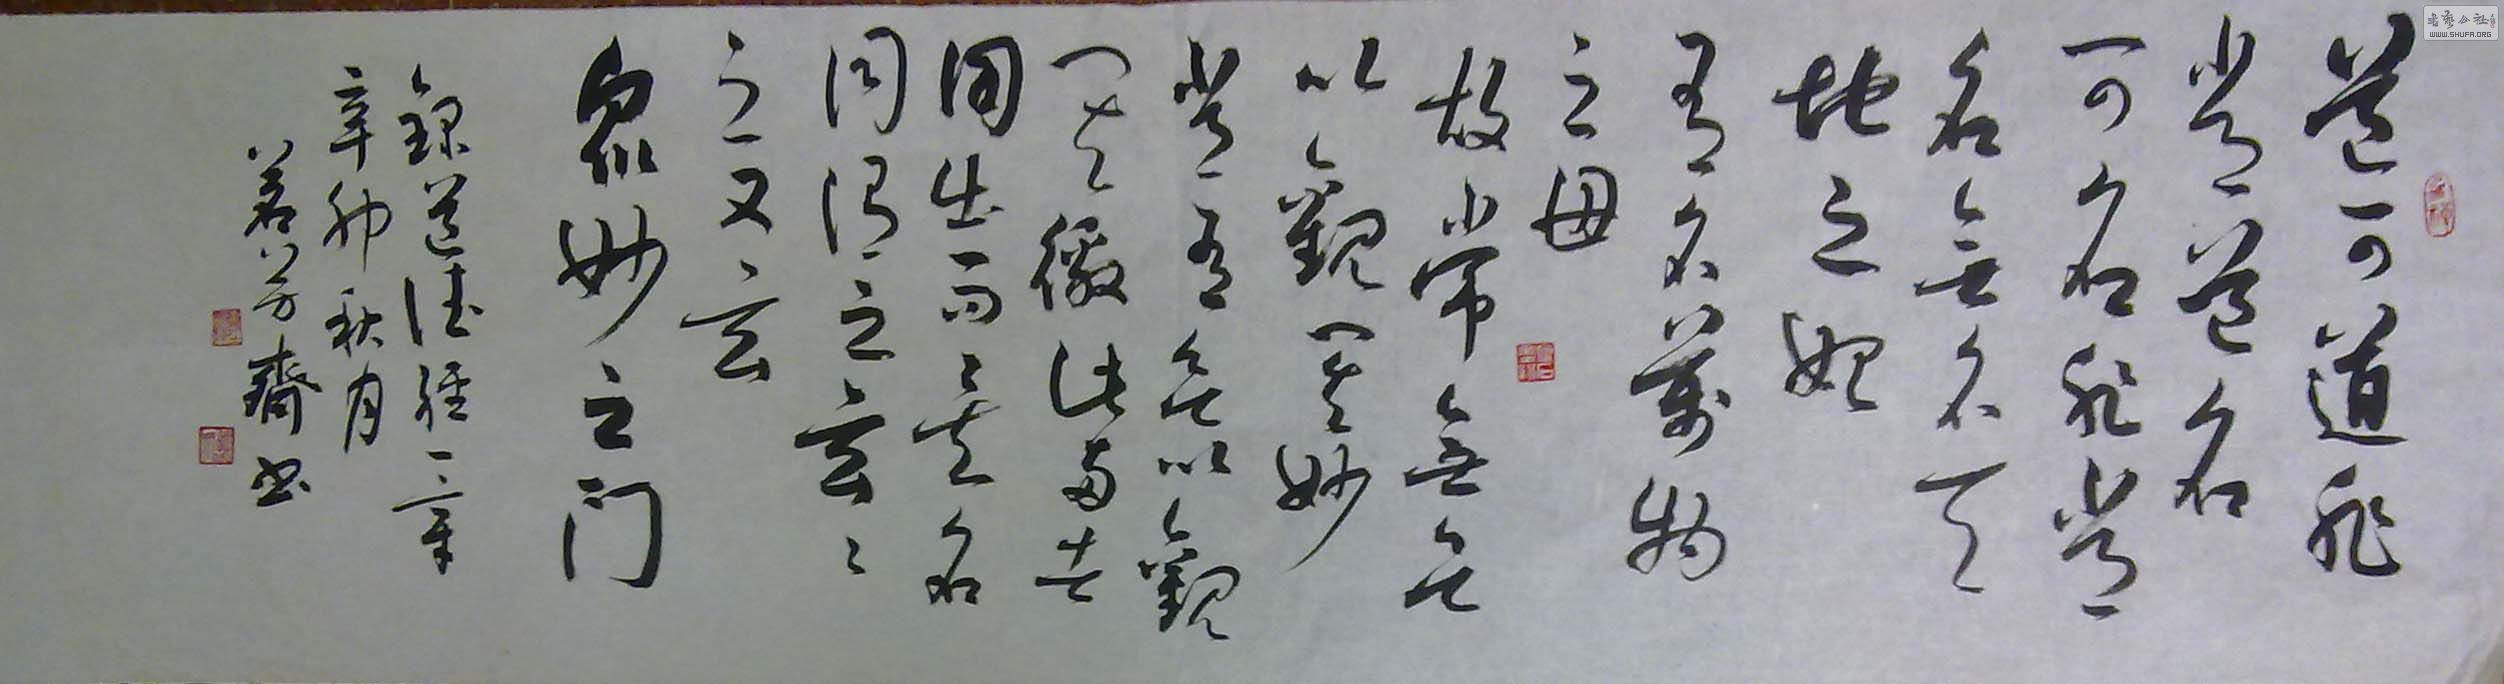 道可道非
常道名
可名非常
名無名天
地之始
有名萬物
之母
故常無欲
以觀其妙
常有欲以觀
其徼此兩者
同出而異名
同謂之玄々
之又玄
眾妙之门
錄道德經一章
辛卯秋月
茗芳齋书
书艺公社
WWW.SHUFA.ORG